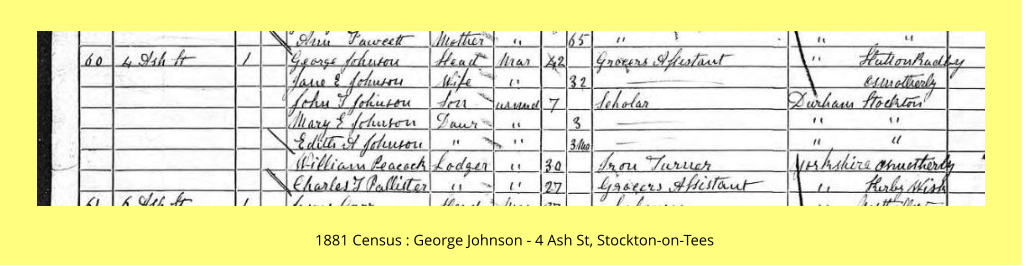 Ann Fawcett Mother " 65 " " "
60 4 Ash St 1 George Johnson Head Mar 42 Grocers Assistant Hutton Rudby
Jane E Johnson Wife " 32 Osmotherly
John T Johnson Son unmd 7 Scholar Durham Stockton
Mary E Johnson Daur " 3 " "
Edith A Johnson " " 3mo " "
William Peacock Lodger " 30 Iron Turner Yorkshire Osmotherly
Charles T Pallister " " 27 Grocers Assistant " Kirby Wisk
61 6 Ash St 1
1881 Census : George Johnson - 4 Ash St, Stockton-on-Tees